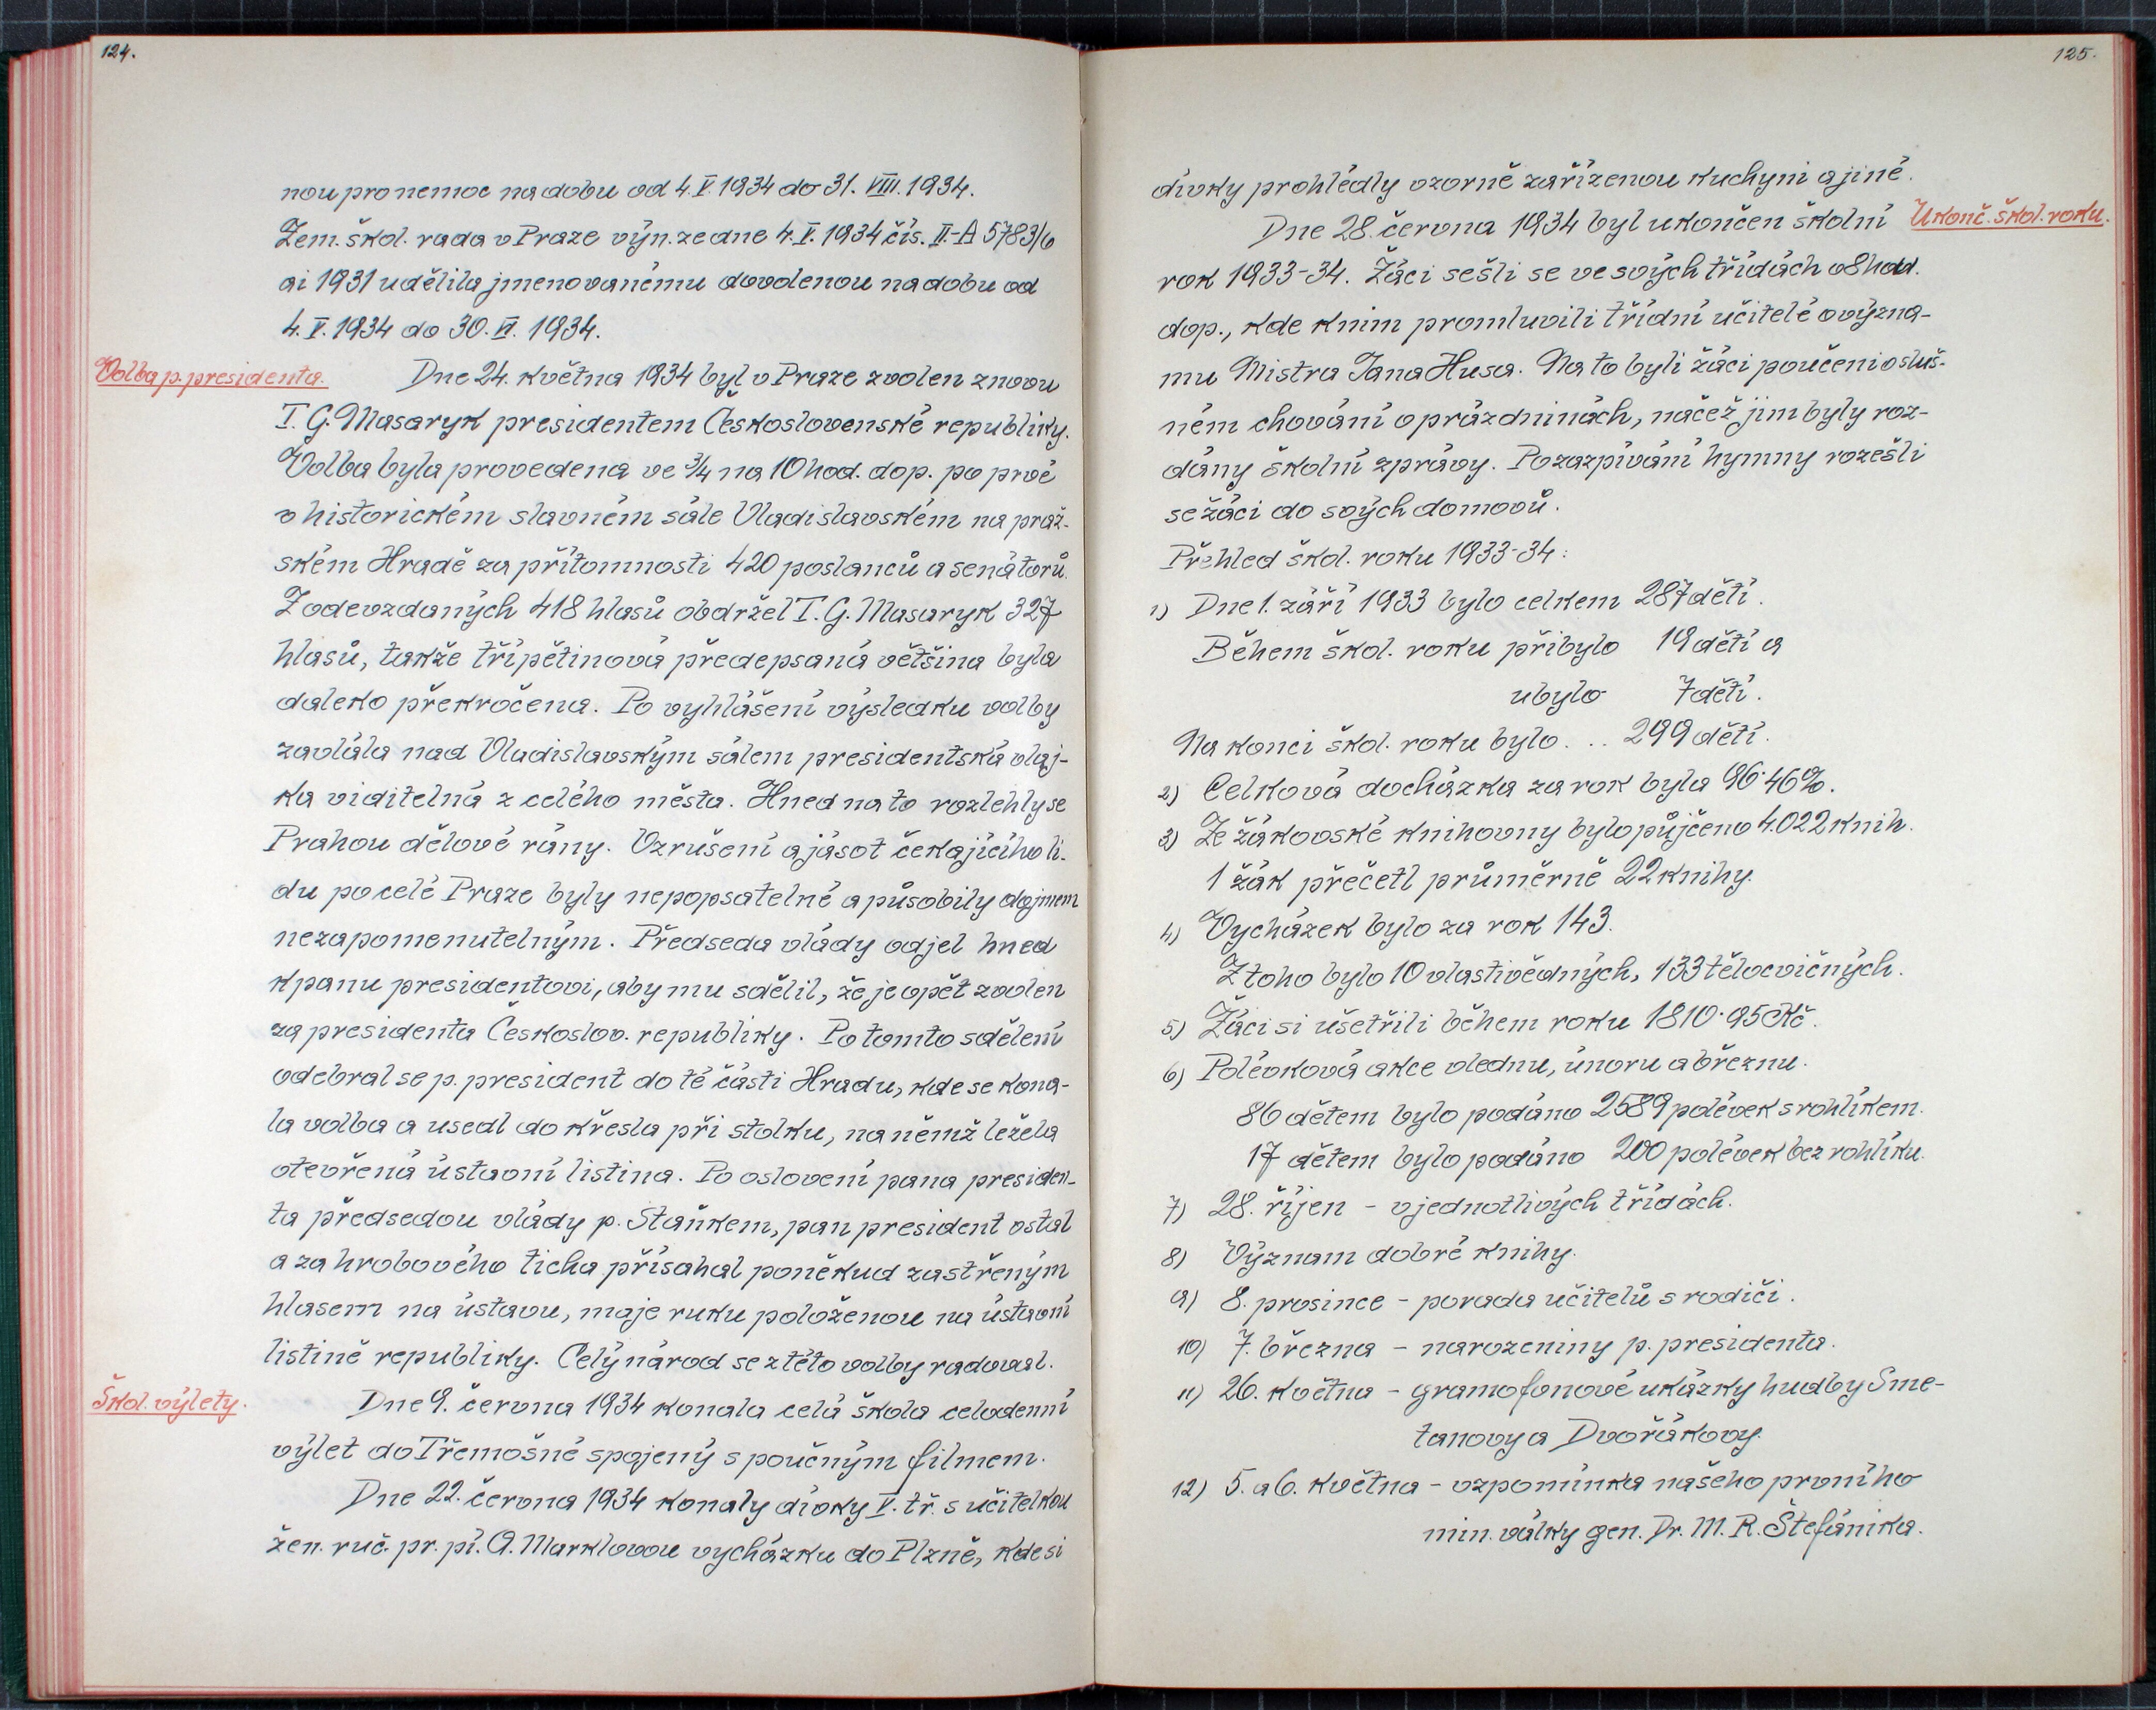 124.
nou pro nemoc na dobu od 4. V. 1934 do 31. VIII. 1934.
Zem. škol. rada v Praze výn. ze dne 4. V. 1934 čís. II.-A 5783/6
ai 1931 udělila jmenovanému dovolenou na dobu od
4. V. 1934 do 30. VI. 1934.
Volba p. presidenta.
Dne 24. května 1934 byl v Praze zvolen znovu
T. G. Masaryk presidentem Československé republiky.
Volba byla provedena ve ¾ na 10 hod. dop. po prvé
v historickém slavném sále Vladislavském na praž-
ském Hradě za přítomnosti 420 poslanců a senátorů.
Z odevzdaných 418 hlasů obdržel T. G. Masaryk 327
hlasů, takže třípětinová předepsaná většina byla
daleko překročena. Po vyhlášení výsledku volby
zavlála nad Vladislavským sálem presidentská vlaj-
ka viditelná z celého města. Hned na to rozlehly se
Prahou dělové rány. Vzrušení a jásot čekajícího li-
du po celé Praze byly nepopsatelné a působily dojmem
nezapomenutelným. Předseda vlády odjel hned
k panu presidentovi, aby mu sdělil, že je opět zvolen
za presidenta Českoslov. republiky. Po tomto sdělení
odebral se p. president do té části Hradu, kde se kona-
la volba a usedl do křesla při stolku, na němž ležela
otevřená ústavní listina. Po oslovení pana presiden-
ta předsedou vlády p. Staňkem, pan president vstal
a za hrobového ticha přísahal poněkud zastřeným
hlasem na ústavu, maje ruku položenou na ústavní
listině republiky. Celý národ se z této volby radoval.
Škol. výlety.
Dne 9. června 1934 konala celá škola celodenní
výlet do Třemošné spojený s poučným filmem.
Dne 22. června 1934 konaly dívky V. tř. s učitelkou
žen. ruč. pr. pí. A. Marklovou vycházku do Plzně, kde si
125.
dívky prohlédly vzorně zařízenou kuchyni a jiné.
Ukonč. škol. roku.
Dne 28. června 1934 byl ukončen školní
rok 1933-34. Žáci sešli se ve svých třídách v 8 hod.
dop., kde k nim promluvili třídní učitelé o význa-
mu Mistra Jana Husa. Na to byli žáci poučeni o sluš-
ném chování o prázdninách, načež jim byly roz-
dány školní zprávy. Po zazpívání hymny rozešli
se žáci do svých domovů.
Přehled škol. roku 1933-34:
1) Dne 1. září 1933 bylo celkem 287 dětí.
Během škol. roku přibylo 19 dětí a
ubylo 7 dětí.
Na konci škol. roku bylo ... 299 dětí.
2) Celková docházka za rok byla 96·46%.
3) Ze žákovské knihovny bylo půjčeno 4.022 knih.
1 žák přečetl průměrně 22 knihy.
4) Vycházek bylo za rok 143.
Z toho bylo 10 vlastivědných, 133 tělocvičných.
5) Žáci si ušetřili během roku 1810·95 Kč.
6) Polévková akce v lednu, únoru a březnu.
86 dětem bylo podáno 2589 polévek s rohlíkem.
17 dětem bylo podáno 200 polévek bez rohlíku.
7) 28. říjen - v jednotlivých třídách.
8) Význam dobré knihy.
9) 8. prosince - porada učitelů s rodiči.
10) 7. března - narozeniny p. presidenta.
11) 26. května - gramofonové ukázky hudby Sme-
tanovy a Dvořákovy.
12) 5. a 6. května - vzpomínka našeho prvního
min. války gen. Dr. M. R. Štefánika.